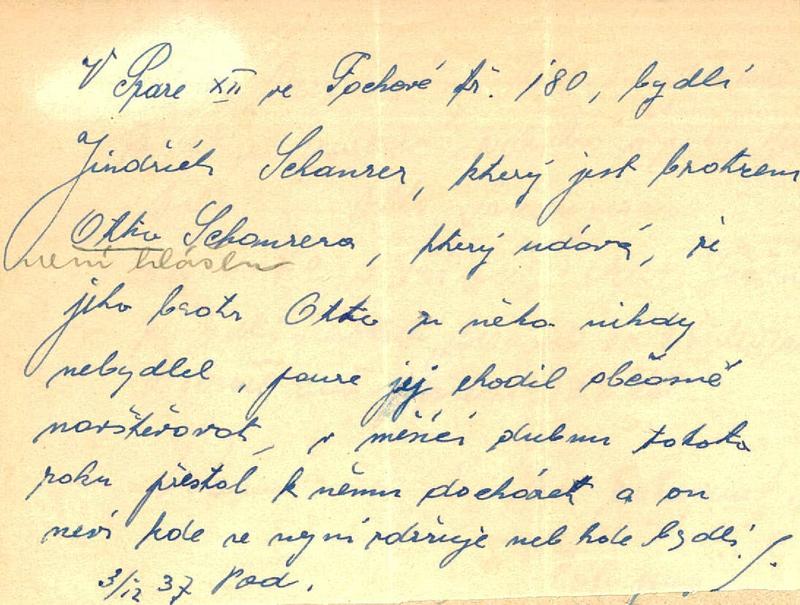 V Praze XII ve Fochově tř. 180, bydlí
Jindřich Schanzer, který jest bratrem
Otto Schanzera, který udává, že
není hlášen
jeho bratr Otto u něho nikdy
nebydlel, pouze jej chodil občasně
navštěvovat, v měsíci dubnu tohoto
roku přestal k němu docházet a on
neví kde se nyní zdržuje neb kde bydlí.
3/IX 37 Pod.